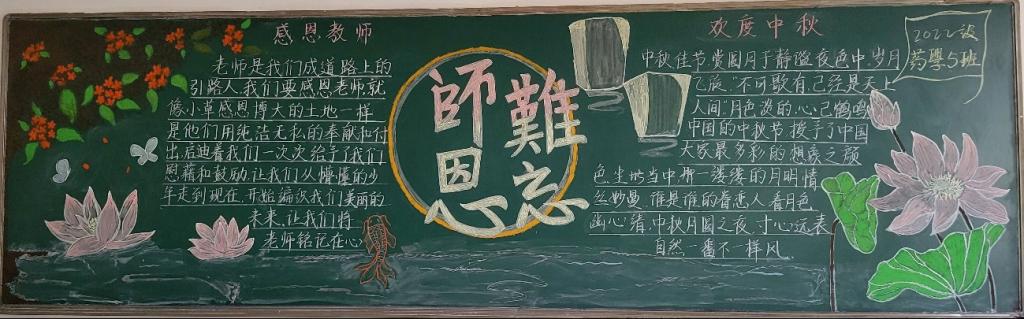 感恩教师
老师是我们成道路上的
引路人,我们要感恩老师就
像小草感恩博大的土地一样
是他们用纯洁无私的奉献和付
出启迪着我们一次次给予了我们
恩藉和鼓励,让我们从懵懂的少
年走到现在,开始编织我们美丽的
未来,让我们将
老师铭记在心
師恩
難忘
欢度中秋
中秋佳节,赏圆月于静谧夜色中,岁月
不可歌有,已经是天上
人间"月色波的,心已
中国的中秋节,授予了中国
大家最多彩的想象之
的月明情
谁是谁的 人看月色
心清,中秋月圆之夜,寸心远表
自然一番不一样风
2022级
药學5班